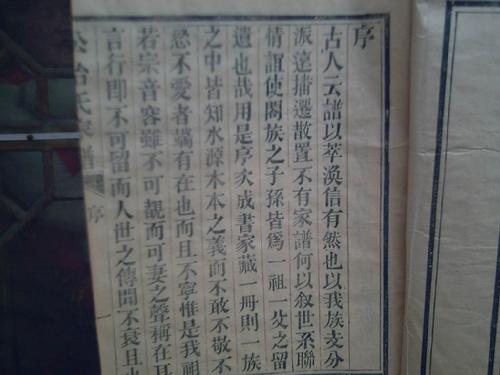 序
古人云譜以萃渙信有然也以我族支分
派遠播遷散置不有家譜何以叙世系聯
情誼使闔族之子孫皆爲一祖一父之留
遺也哉用是序次成書家藏一冊則一族
之中皆知水源木本之義而不敢不敬不
忍不愛者端有在也而且不寧惟是我祖
若宗音容雖不可覩而可妻之聲稱在耳
言行即不可留而人世之傳聞不衰且
氏 譜 序 一